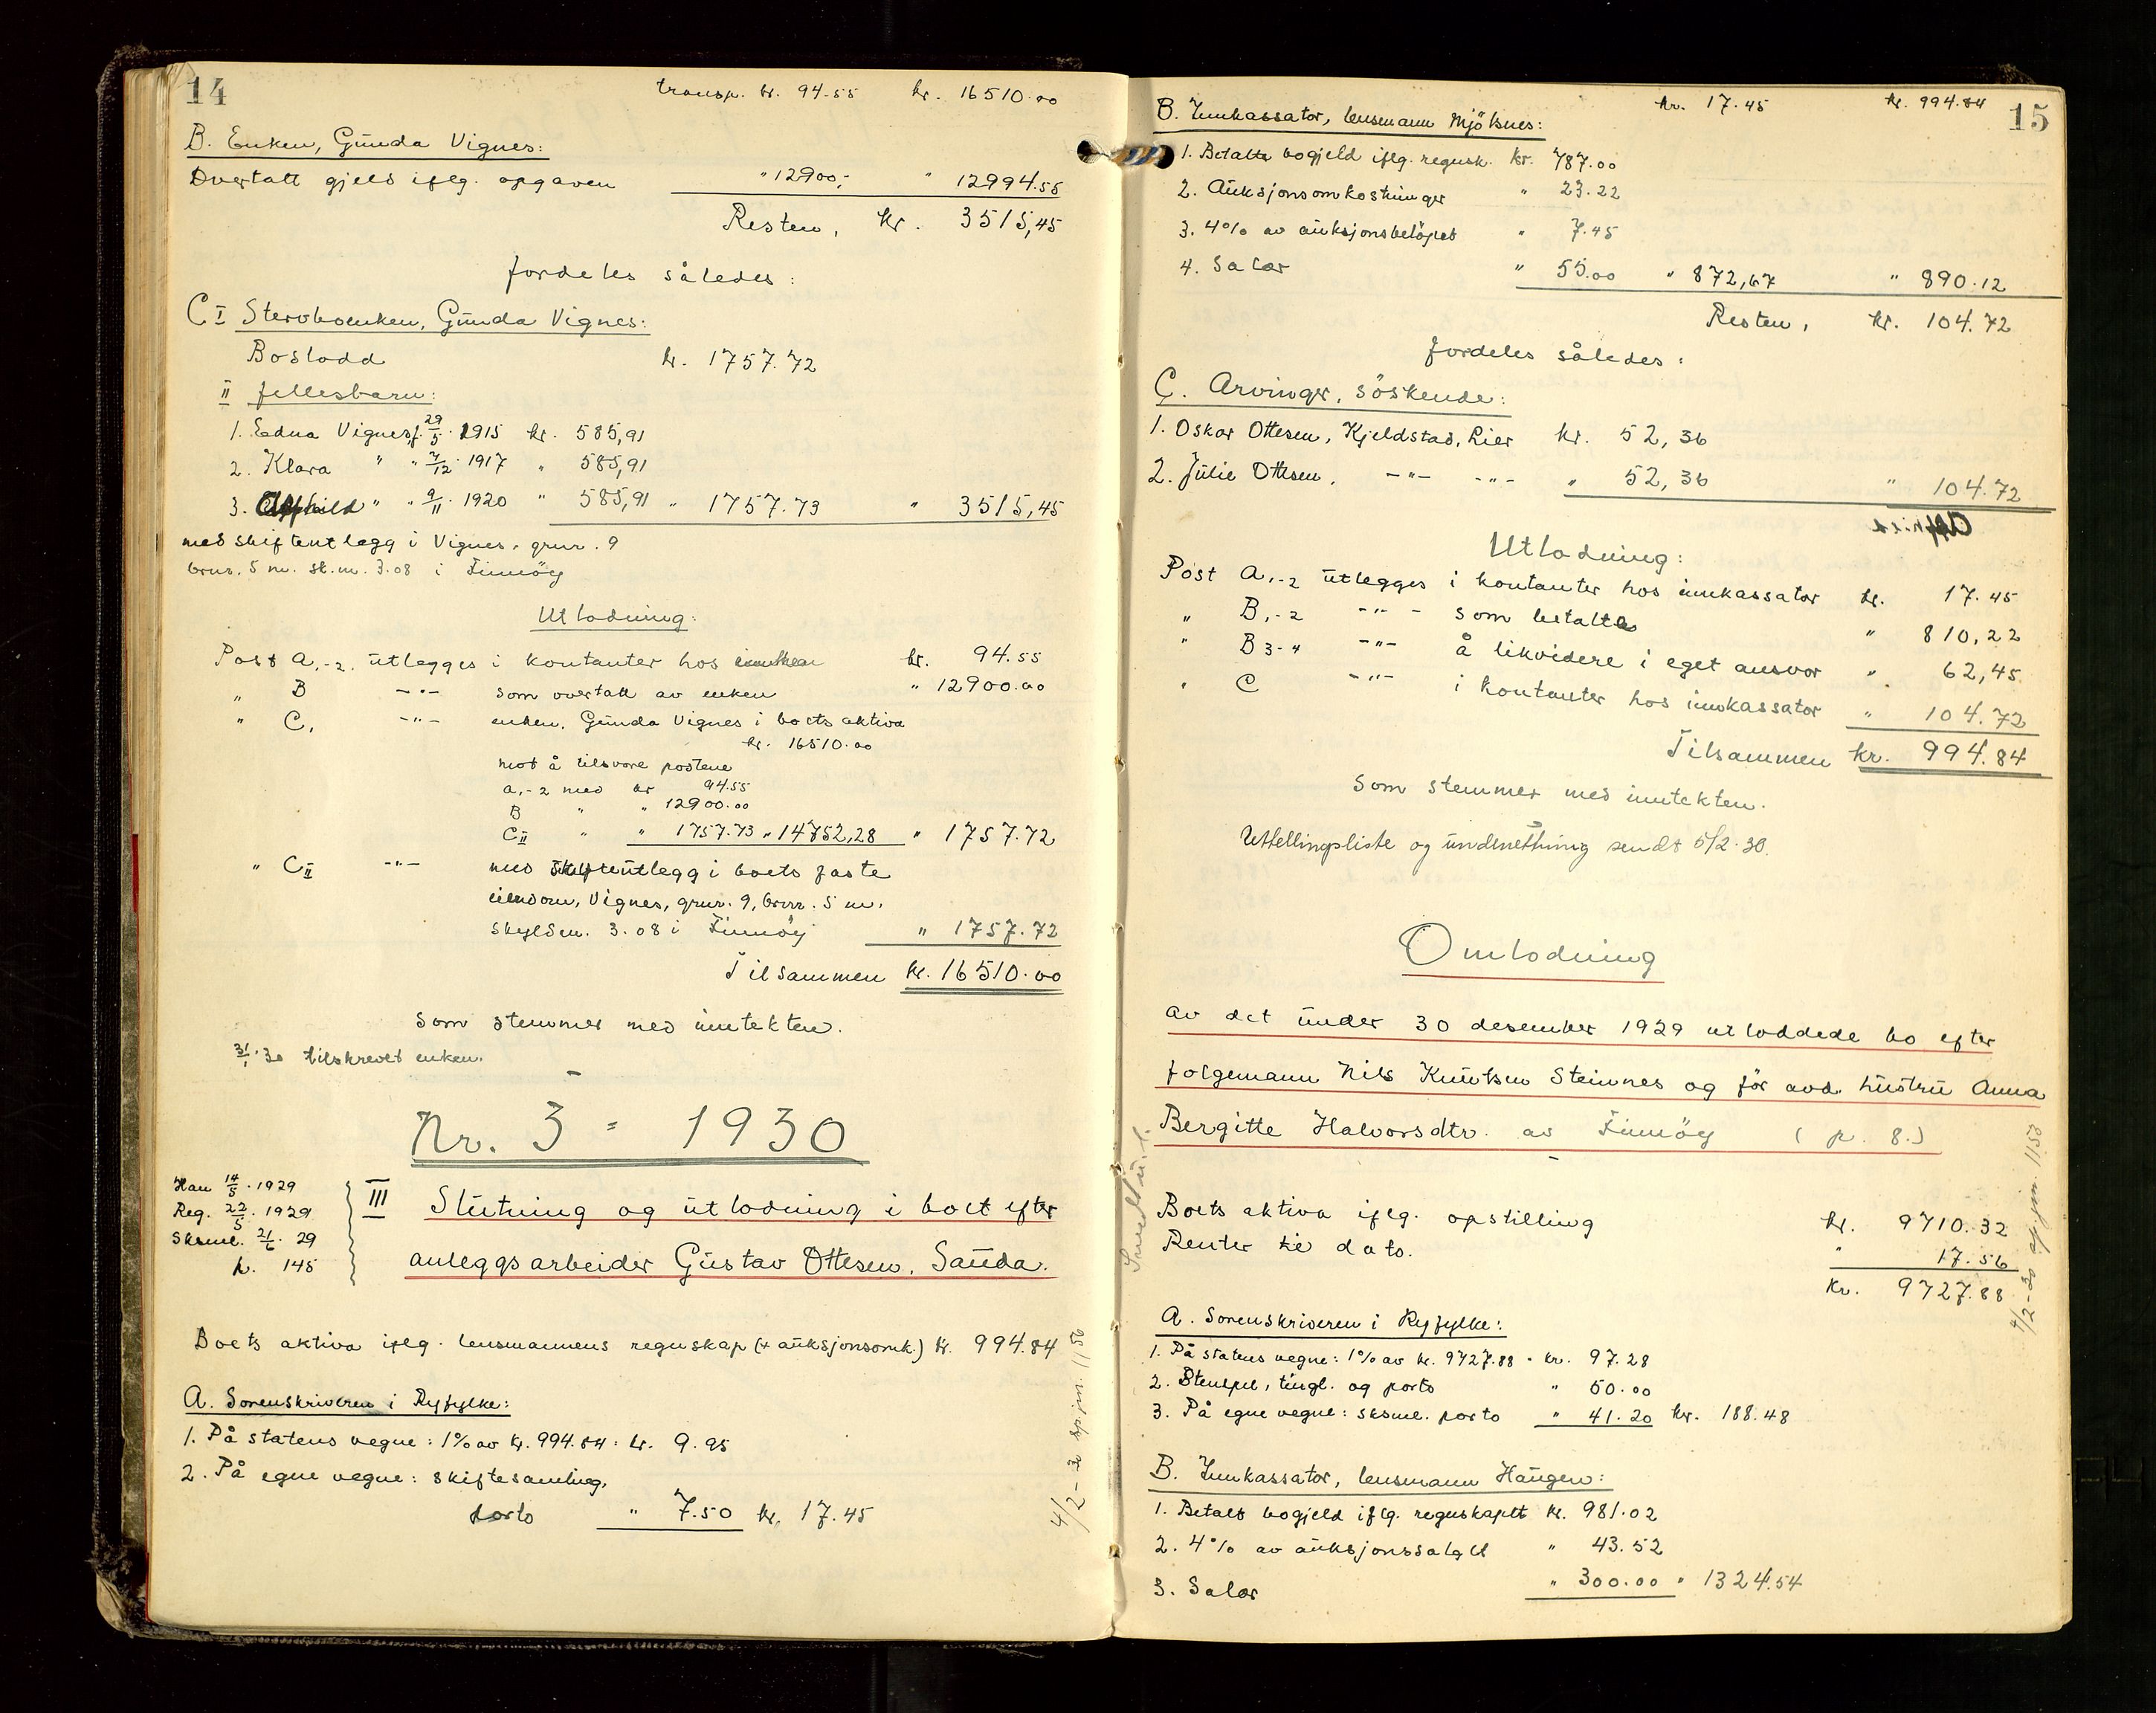 14
transp. kr. 94.55 kr. 16510.00
B. Enken, Gunda Vignes:
Overtatt gjeld iflg. opgaven " 12900,- " 12994.55
Resten, kr. 3515,45
fordeles således:
C I Stervboenken, Gunda Vignes:
Boslodd kr. 1757.72
II fellesbarn:
1. Edna Vignes, f. 29/5. 1915 kr. 585,91
2. Klara " " 7/12. 1917 " 585,91
3. " " 9/11. 1920 " 585,91 " 1757.73 " 3515,45
med skifteutlegg i Vignes, gnr. 9
brnr. 5 m. sk.m. 3.08 i Finnöy
Utlodning:
Post A,-2. utlegges i kontanter hos enken kr. 94.55
" B -"- som overtatt av enken " 12900.00
" C, -"- enken, Gunda Vignes i boets aktiva
kr. 16510.00
mot å tilsvare postene
A,-2 med kr 94.55
B " " 12900.00
C II " " 1757.73 " 14752,28 " 1757.72
" C II -"- med skifteutlegg i boets faste
eiendom, Vignes, gnr. 9, brnr. 5 m.
skyldm. 3.08 i Finnöy " 1757.72
Tilsammen kr. 16510.00
som stemmer med inntekten.
31/1.30 tilskrevet enken.
Nr. 3 = 1930
Hau 14/5. 1929
Reg. 22/5. 1929
Sksml. 21/6. 29
p. 145
III Slutning og utlodning i boet efter
anleggsarbeider Gustav Ottesen, Sauda.
Boets aktiva iflg. lensmannens regnskap (+ auksjonsomk.) kr. 994.84
A. Sorenskriveren i Ryfylke:
1. På statens vegne: 1% av kr. 994.84: kr. 9.95
2. På egne vegne: skiftesamling,
porto " 7.50 kr. 17.45
15
kr. 17.45 kr. 994.84
B. Innkassator, lensmann Mjölsnes:
1. Betalte bogjeld iflg. regnsk. kr. 787.00
2. Auksjonsomkostninger " 23.22
3. 4% av auksjonsbelöpet " 7.45
4. Salær " 55.00 " 872,67 " 890.12
Resten, kr. 104.72
fordeles således:
C. Arvinger, söskende:
1. Oskar Ottesen, Kjeldstad, Lier kr. 52,36
2. Julie Ottesen, -"- -"- " 52,36 " 104.72
Utlodning:
Post A,-2 utlegges i kontanter hos innkassator kr. 17.45
" B,-2 -"- som betalte " 810,22
" B 3-4 -"- å likvidere i eget ansvar " 62,45
" C -"- i kontanter hos innkassator " 104.72
Tilsammen kr. 994.84
som stemmer med inntekten.
Utlodningsliste og underretning sendt 5/2.30.
Omlodning
av det under 30 desember 1929 utloddede bo efter
folgemann Nils Knutsen Steinnes og för avd. hustru Anna
Bergitte Halvorsdtr. av Finnöy (p. 8.)
Boets aktiva iflg. opstilling kr. 9710.32
Renter til dato. " 17.56
kr. 9727.88
A. Sorenskriveren i Ryfylke:
1. På statens vegne: 1% av kr. 9727.88 = kr. 97.28
2. Stempel, tingl. og porto " 50.00
3. På egne vegne: sksml. porto " 41.20 kr. 188.48
B. Innkassator, lensmann Haugen:
1. Betalt bogjeld iflg. regnskapet kr. 981.02
2. 4% av auksjonssalget " 43.52
3. Salær " 300.00 " 1324.54